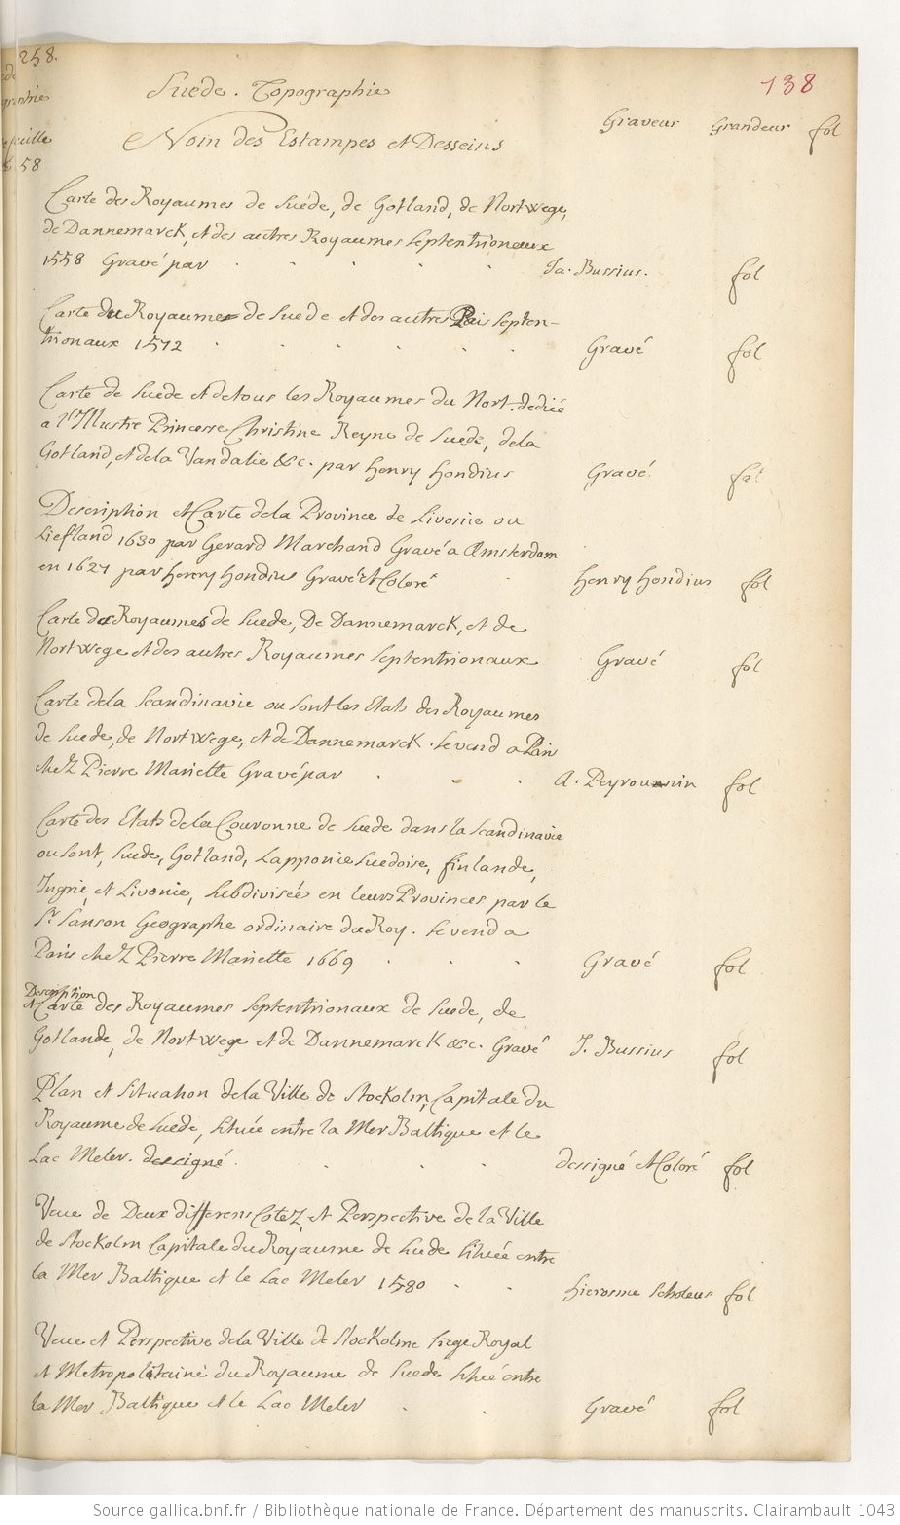 258.
138
Suede. Topographie
Nom des Estampes et Desseins Graveur Grandeur fol
Carte des Royaumes de Suéde, de Gotland, de Nortwege,
de Dannemarck, et des autres Royaumes Septentrioneaux
1558 Gravé par Ja. Bussius. fol
Carte du Royaume de Suede et des autres Païs Septen-
trionaux 1572 Gravé fol
Carte de Suede et de tous les Royaumes du Nort. dedié
a l'Illustre Princesse Christine Reyne de Suede, dela
Gotland, et dela Vandalie &c. par Henry Hondius Gravé. fol
Description et Carte dela Province de Livonie ou
Liefland 1630 par Gerard Marchand Gravé a Amsterdam
en 1627 par Henry Hondius Gravé et Coloré Henry Hondius fol
Carte des Royaumes de Suede, De Dannemarck, et de
Nortwege et des autres Royaumes Septentrionaux Gravé fol
Carte dela Scandinavie ou sont les Etats des Royaumes
de Suede, de Nortwege, et de Dannemarck. se vend a Paris
chez Pierre Mariette Gravé par A. Peyrounin fol
Carte des Etats de la Couronne de Suede dans la Scandinavie
ou sont, Suede, Gotland, Lapponie Suedoise, finlande,
Ingrie, et Livonie, Subdivisées en leurs Provinces par le
Sr. Sanson Geographe ordinaire du Roy. se vend a
Paris chez Pierre Mariette 1669 Gravé fol
Description
et Carte des Royaumes Septentrionaux de Suede, de
Gotlande, de Nortwege et de Dannemarck &c. Gravé J. Bussius fol
Plan et Situation dela Ville de Stockolm, Capitale du
Royaume de Suede, située entre la Mer Baltique et le
Lac Meler. dessigné. dessigné et Coloré fol
Veue de Deux differens Cotez, et Perspective de la Ville
de Stockolm Capitale du Royaume de Suede située entre
la Mer Baltique et le Lac Meler 1580 Hierosme Scholeus fol
Veue et Perspective dela Ville de Stockolme siege Royal
et Metropolitaine du Royaume de Suede située entre
la Mer Baltique et le Lac Meler Gravé fol
Source gallica.bnf.fr / Bibliothèque nationale de France. Département des manuscrits. Clairambault 1043